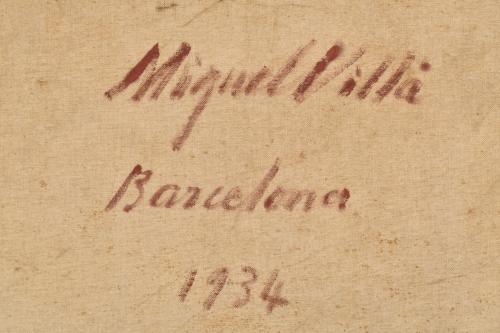 Miguel Villà
Barcelona
1934